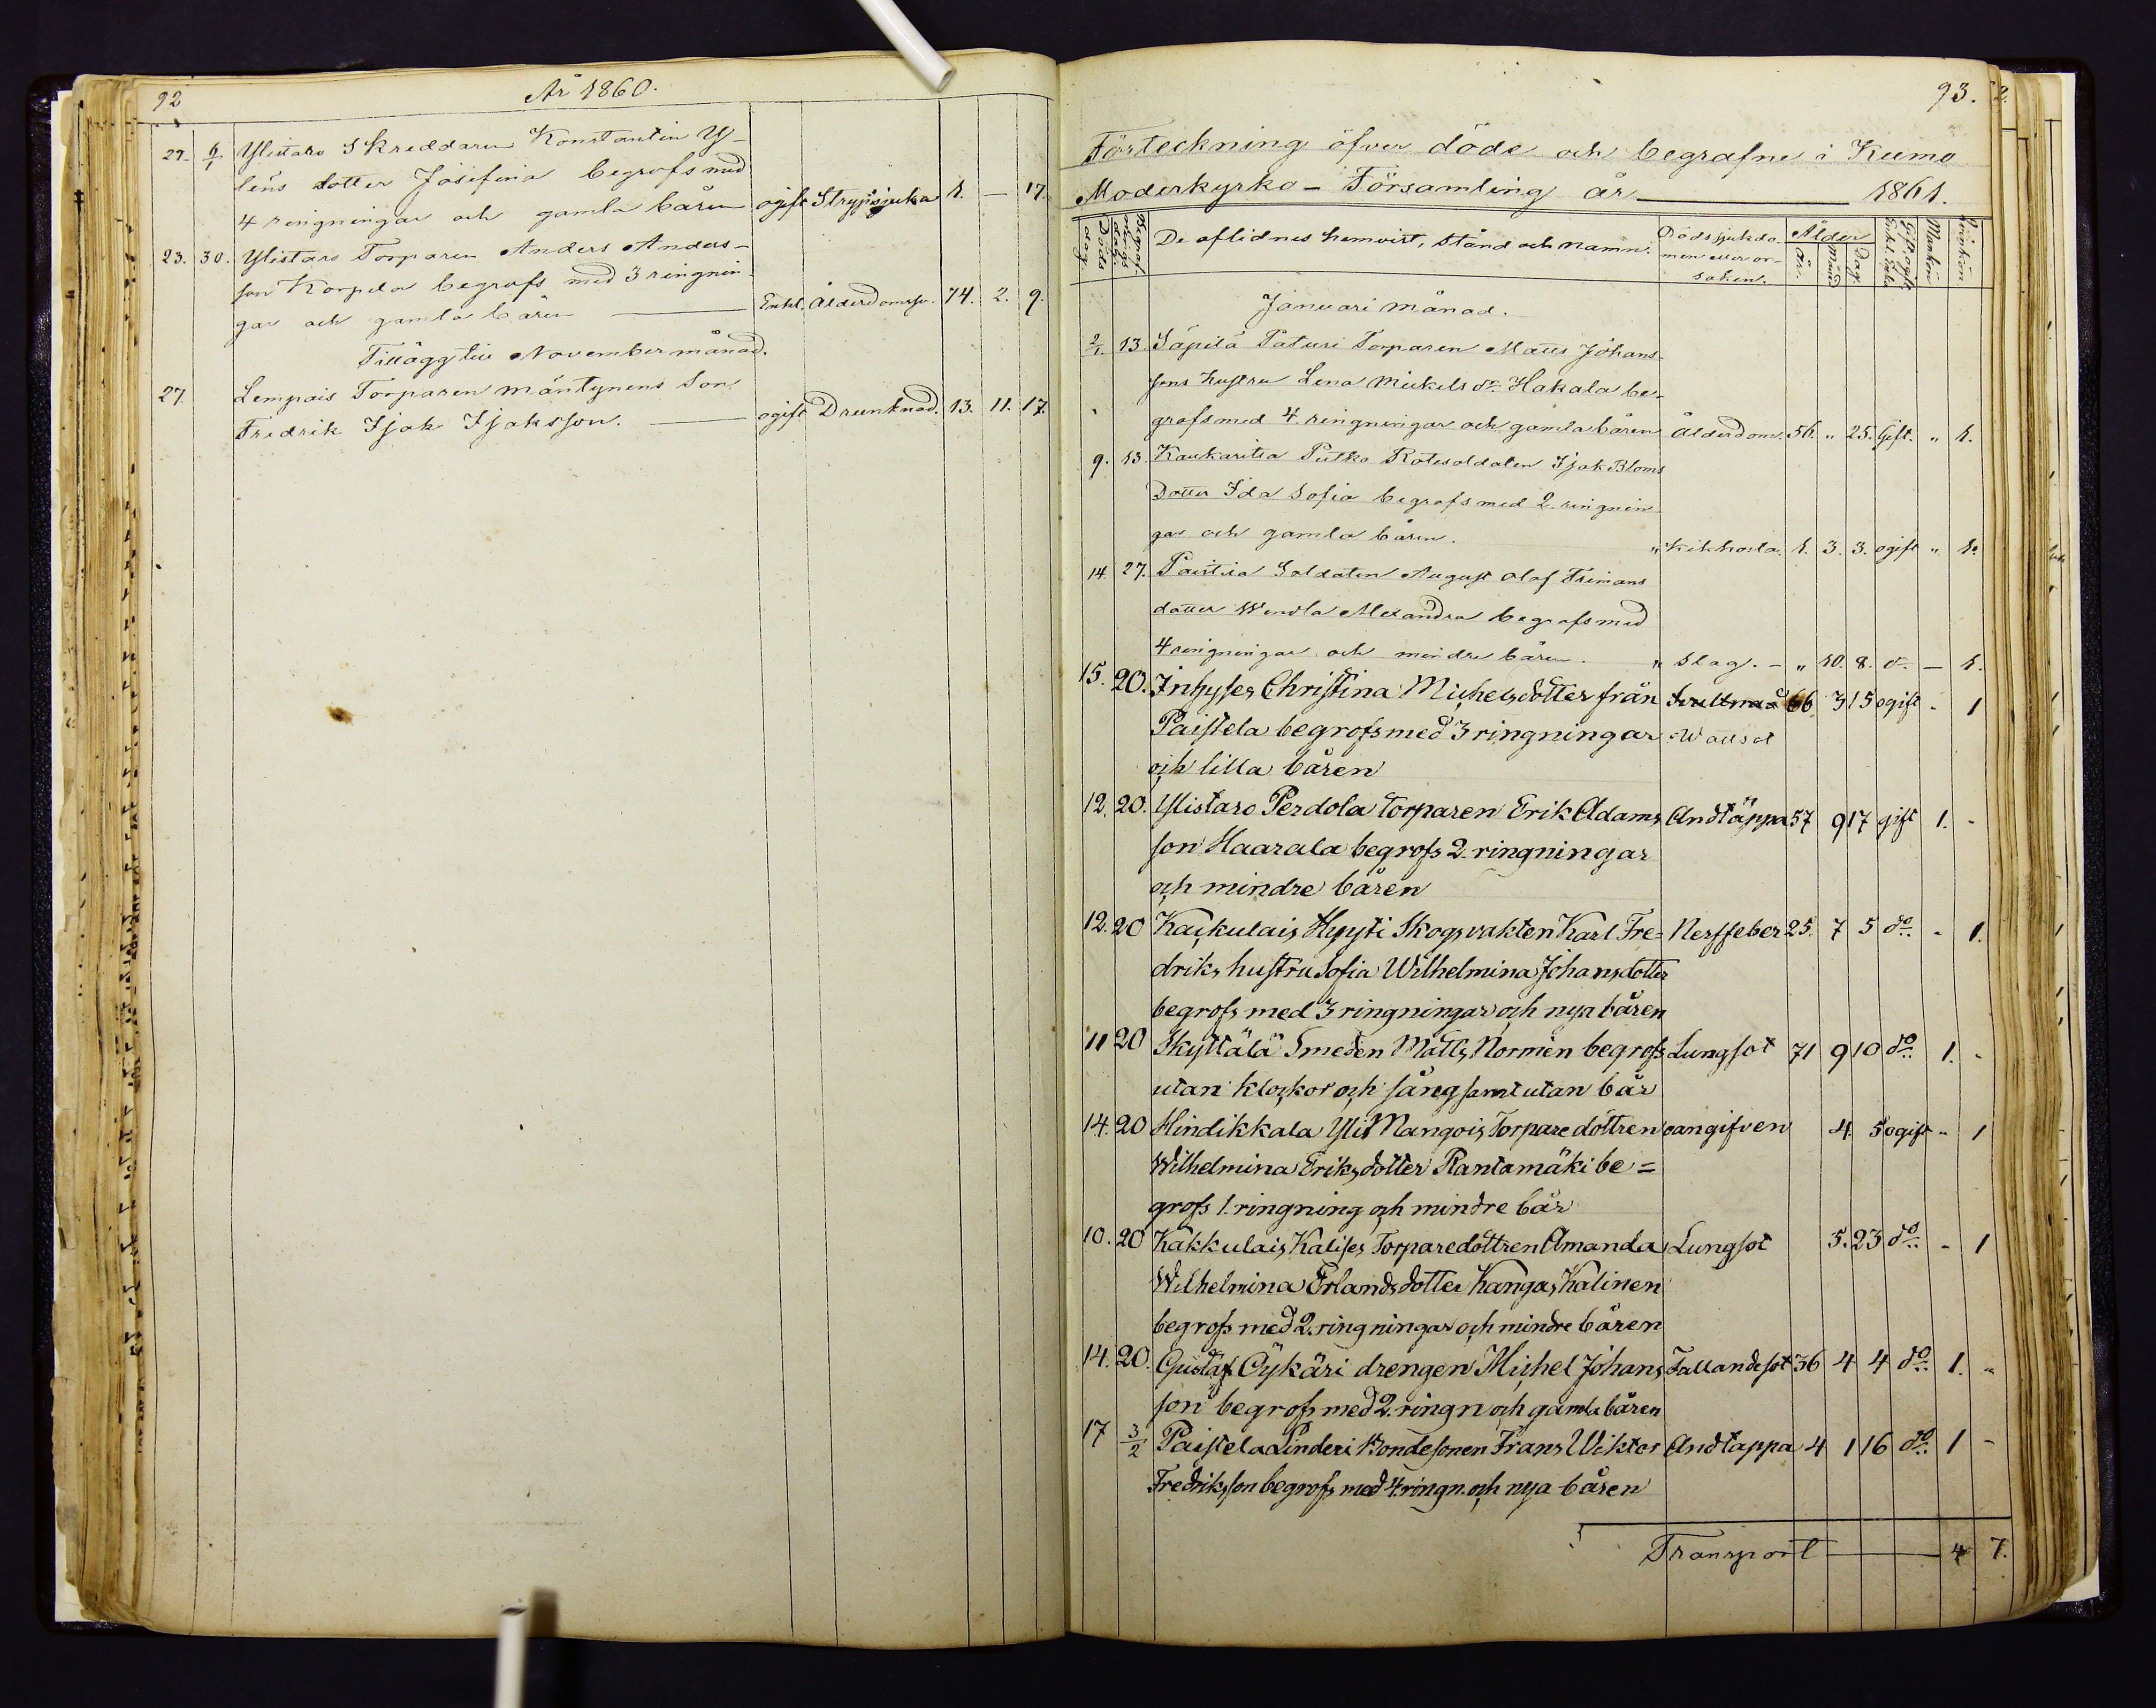 92
År 1860.
27. 6/1 Ylistaro Skreddaren Konstantin Y-
léns dotter Josefina begrofs med
4 ringningar och gamla båren ogift Strypsjuka 1. — 17.
23. 30. Ylistaro Torparen Anders Anders-
son Korpela begrofs med 3 ringnin
gar och gamla båren — Enkl. Ålderdomsr. 74. 2. 9.
Tillägg till November månad.
27. Lempais Torparen Mäntynens Son
Fredrik Isak Isaksson. — ogift Drunknad. 13. 11. 17.
93.
Förteckning öfver döde och begrafne i Kumo
Moderkyrko-Församling år — 1861.
Döds dag. Begrafnings dag. De aflidnes hemvist, Stånd och Namn. Dödssjukdomen eller orsaken. Ålder År. Månad Dag. Gift, ogift Enkl. Enka Mankön Qvinkön
Januari månad.
2/1. 13. Säpilä Paturi Torparen Matts Johans-
sons hustru Lena Mickels dr Hakala be-
grofs med 4. ringningar och gamla båren Ålderdom. 56. „ 25. Gift. „ 1.
9. 13. Kaukaritsa Putko Rotesoldaten Isak Bloms
Dotter Ida Sofia begrofs med 2. ringnin
gar och gamla båren. „ Kikhosta. 1. 3. 3. ogift „ 1.
14. 27. Paistila Soldaten August Olof Frimans
dotter Wendla Alexandra begrofs med
4 ringningar och mindre båren. „ Slag. - „ 10. 8. do — 1.
15. 20. Inhyses Christina Michelsdotter från 66 3 15 ogift - 1
Paistela begrofs med 3 ringningar Wattsot
och lilla båren
12. 20. Ylistaro Perdola Torparen Erik Adams Andtäppa 57 9 17 gift 1. -
son Haarala begrofs 2 ringningar
och mindre båren
12. 20 Kackulais Hyyti Skogsvakten Karl Fre= Nerffeber 25. 7 5 do - 1.
driks hustru Sofia Wilhelmina Johansdotter
begrofs med 3 ringningar och nya båren
11 20 Skyttälä Smeden Matts Normén begrofs Lungsot 71 9 10 do 1. -
utan klockor och sång samt utan bår
14. 20 Hindikkala Yli Mangois Torparedottren oangifven 4. 5 ogift - 1
Wilhelmina Eriksdotter Rantamäki be=
grofs 1. ringning och mindre bår
10. 20 Kakkulais Kalises Torparedottren Amanda Lungsot 5. 23 do - 1
Wilhelmina Erlandsdotter Kangas Kalinen
begrofs med 2. ringningar och mindre båren
14. 20. Gustaf Cykäri drengen Michel Johans Fallandesot 36 4 4 do 1. -
son begrofs med 2. ringn och gamla båren
17 3/2 Paistela Linderi Bondesonen Frans Wiktor Andtäppa 4 1 16 do 1 -
Fredriksson begrofs med 4. ringn. och nya båren
Transport — 4 7.